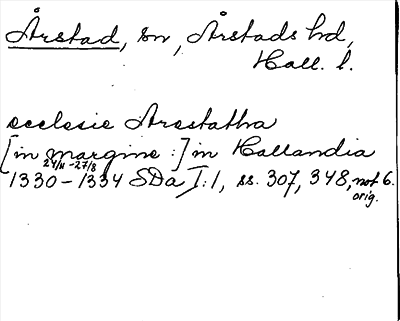 Årstad, sn, Årstads hd,
Hall. l.
ecclesie Arestatha
[in margine:] in Hallandia
24/11 - 27/8
1330-1334 SDa I:1, ss. 307, 348, not 6.
orig.